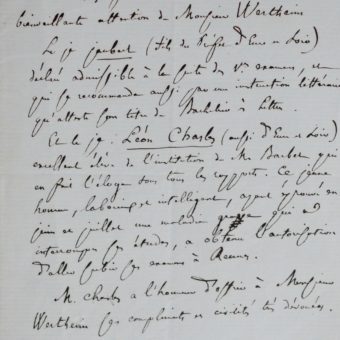 bienveillante attention de Monsieur Wertheim
Le je joubert (fils du Préfet d'Eure et Loir)
déclaré admissible à la suite des 1ers examens, et
qui se recommande aussi par une instruction littéraire
qu'atteste son titre de Bachelier ès Lettres.
Et le je Léon Charles (aussi d'Eure et Loir)
excellent élève de l'institution de M. Barbet, qui
en fait l'éloge sous tous les rapports. Ce jeune
homme, laborieux et intelligent, ayant éprouvé en
juin et juillet une maladie grave qui a
interrompu ses études, a obtenu l'autorisation
d'aller subir ses examens à Rennes.
M. Chasles a l'honneur d'offrir à Monsieur
Wertheim ses compliments et civilités très dévouées.